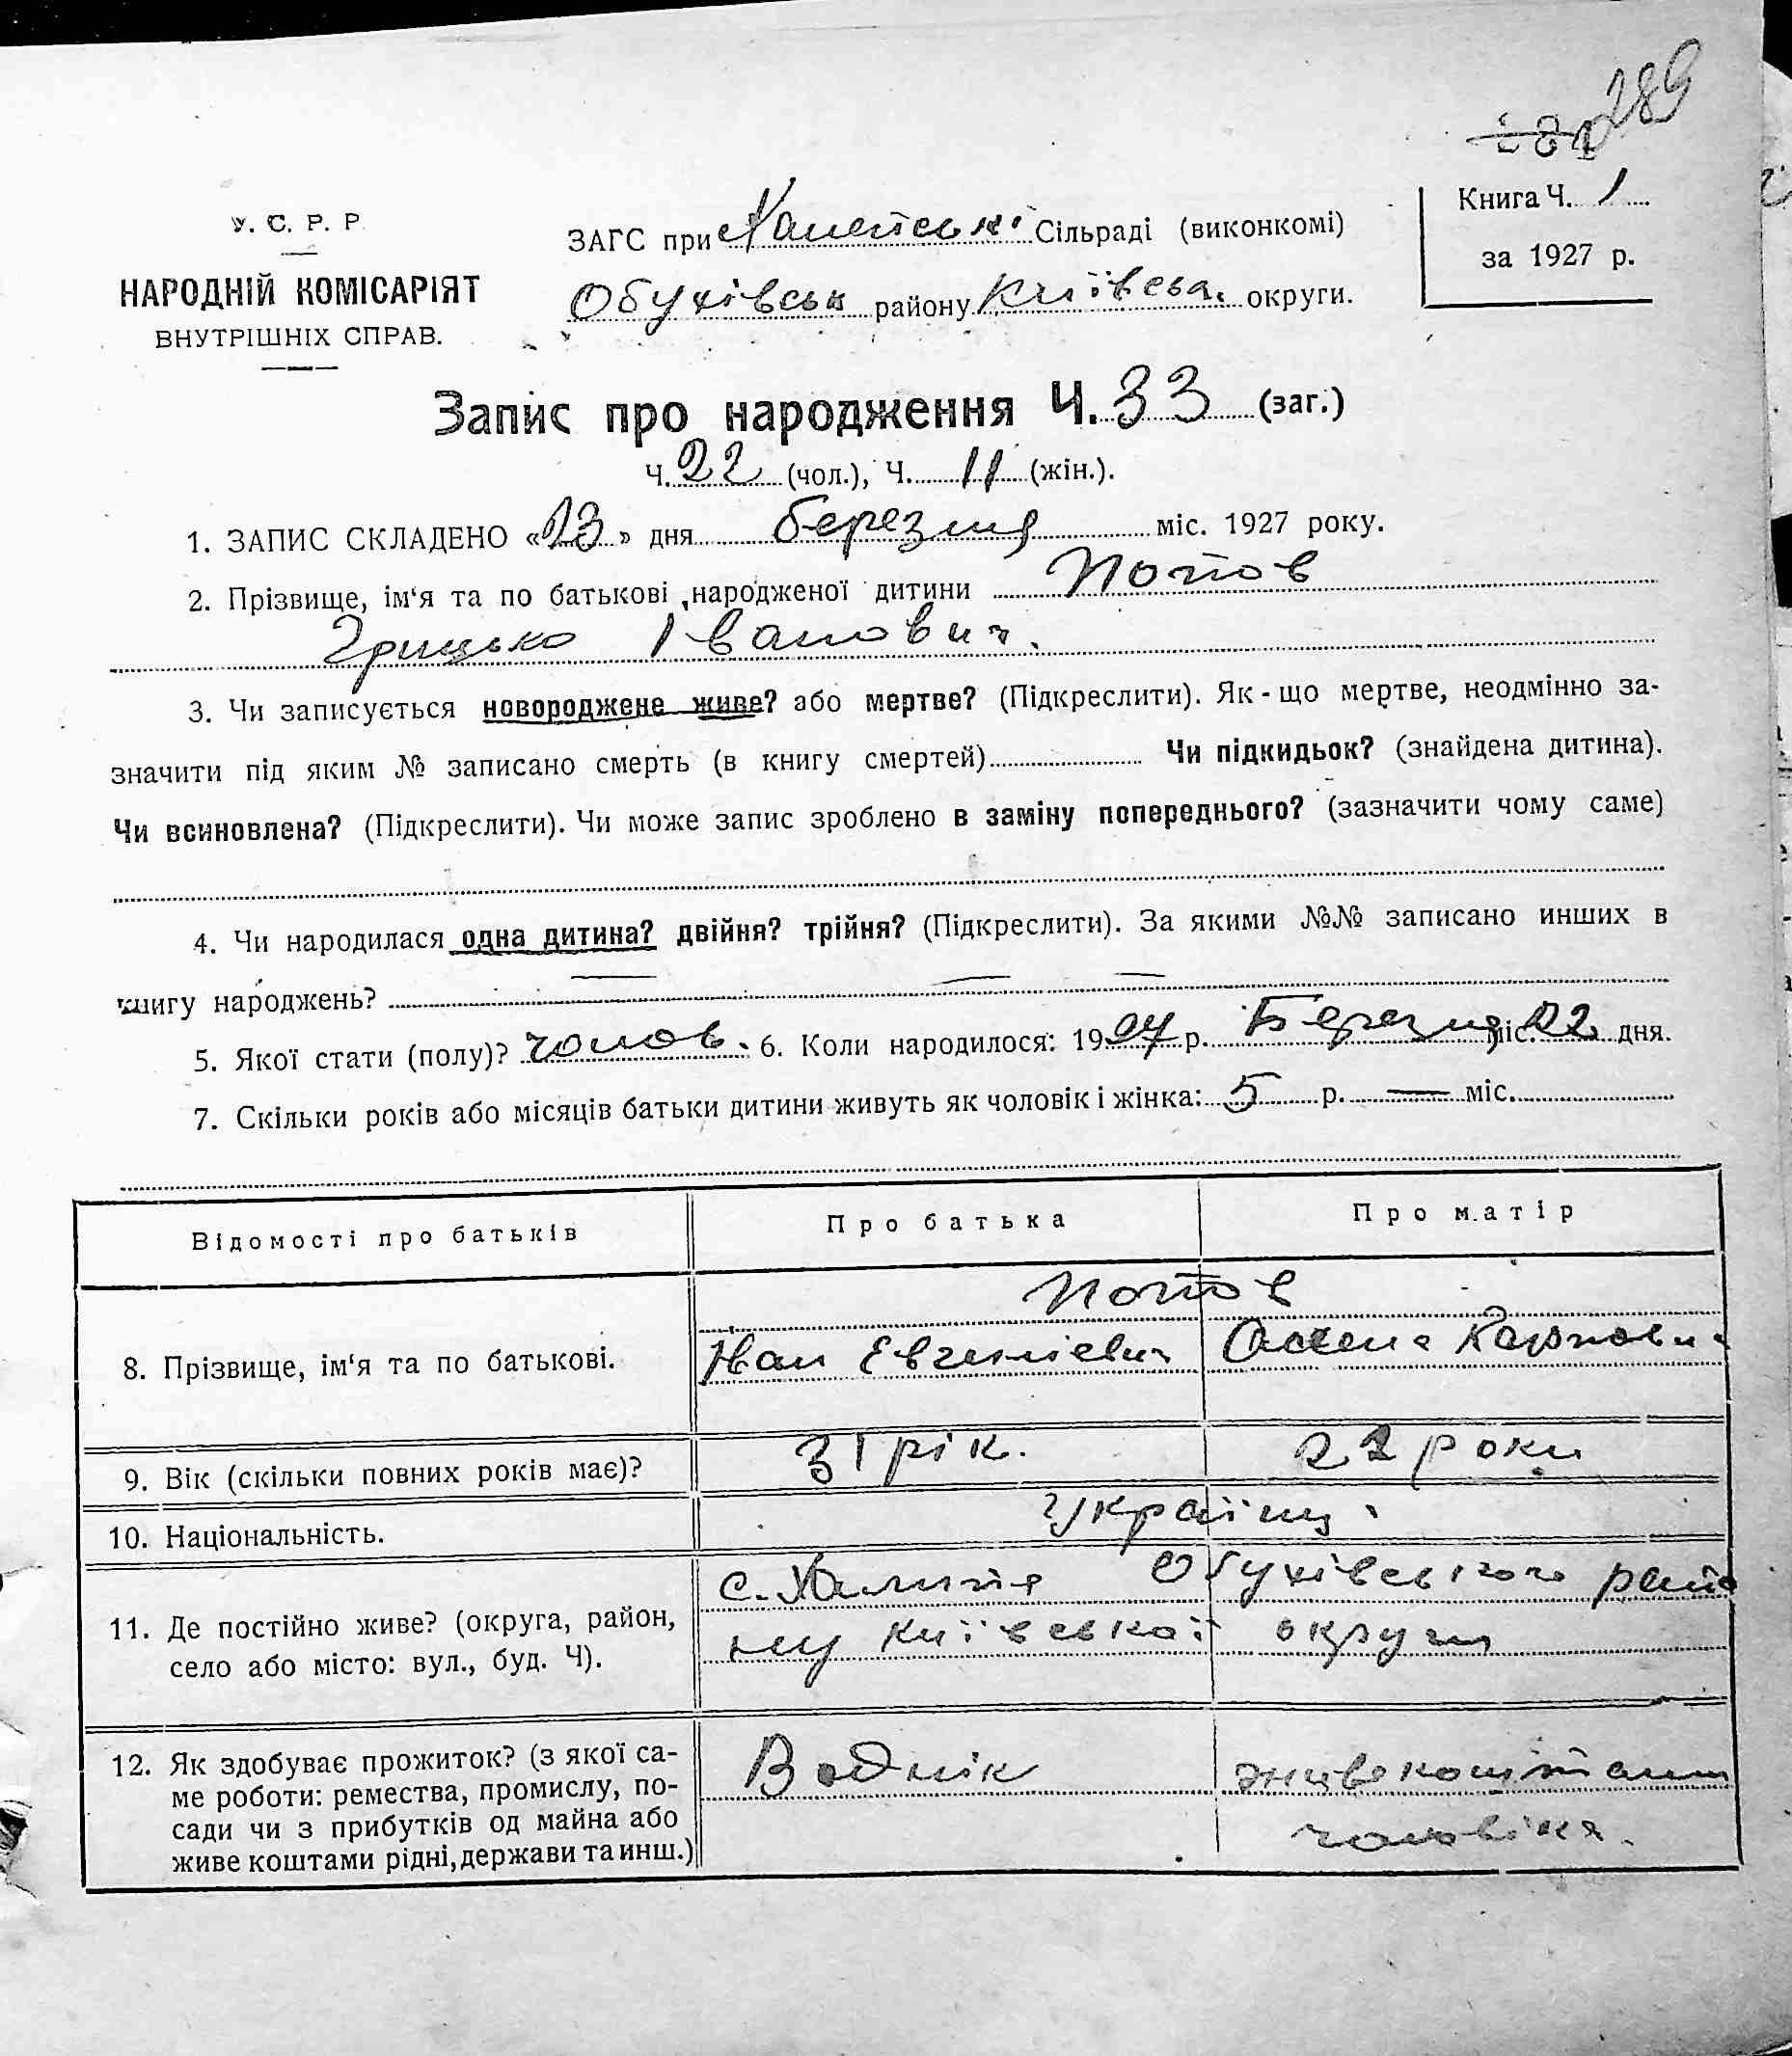 289
У. С. Р. Р.
НАРОДНІЙ КОМІСАРІЯТ
ВНУТРІШНІХ СПРАВ.
ЗАГС при Сільраді (виконкомі)
Обухівськ району Київськ. округи.
Книга Ч. 1
за 1927 р.
Запис про народження Ч. 33 (заг.)
Ч. 22 (чол.), Ч. 11 (жін.).
1. ЗАПИС СКЛАДЕНО «23» дня березня міс. 1927 року.
2. Прізвище, ім‘я та по батькові народженої дитини Попов
Грицько Іванович.
3. Чи записується новороджене живе? або мертве? (Підкреслити). Як-що мертве, неодмінно за-
значити під яким № записано смерть (в книгу смертей) Чи підкидьок? (знайдена дитина).
Чи всиновлена? (Підкреслити). Чи може запис зроблено в заміну попереднього? (зазначити чому саме)
4. Чи народилася одна дитина? двійня? трійня? (Підкреслити). За якими №№ записано инших в
книгу народжень?
5. Якої стати (полу)? чолов. 6. Коли народилося: 1927 р. Березня міс. 22 дня.
7. Скільки років або місяців батьки дитини живуть як чоловік і жінка: 5 р. — міс.
Відомості про батьків Про батька Про матір
Попов
8. Прізвище, ім‘я та по батькові. Іван Евгенієвич
9. Вік (скільки повних років має)? 31 рік. 22 роки
10. Національність. Україн.
11. Де постійно живе? (округа, район,
село або місто: вул., буд. Ч).
с. Халипя Обухівського райо
ну київської округи
12. Як здобуває прожиток? (з якої са-
ме роботи: ремества, промислу, по-
сади чи з прибутків од майна або
живе коштами рідні, держави та инш.)
Воднік
живе коштами
чоловіка.